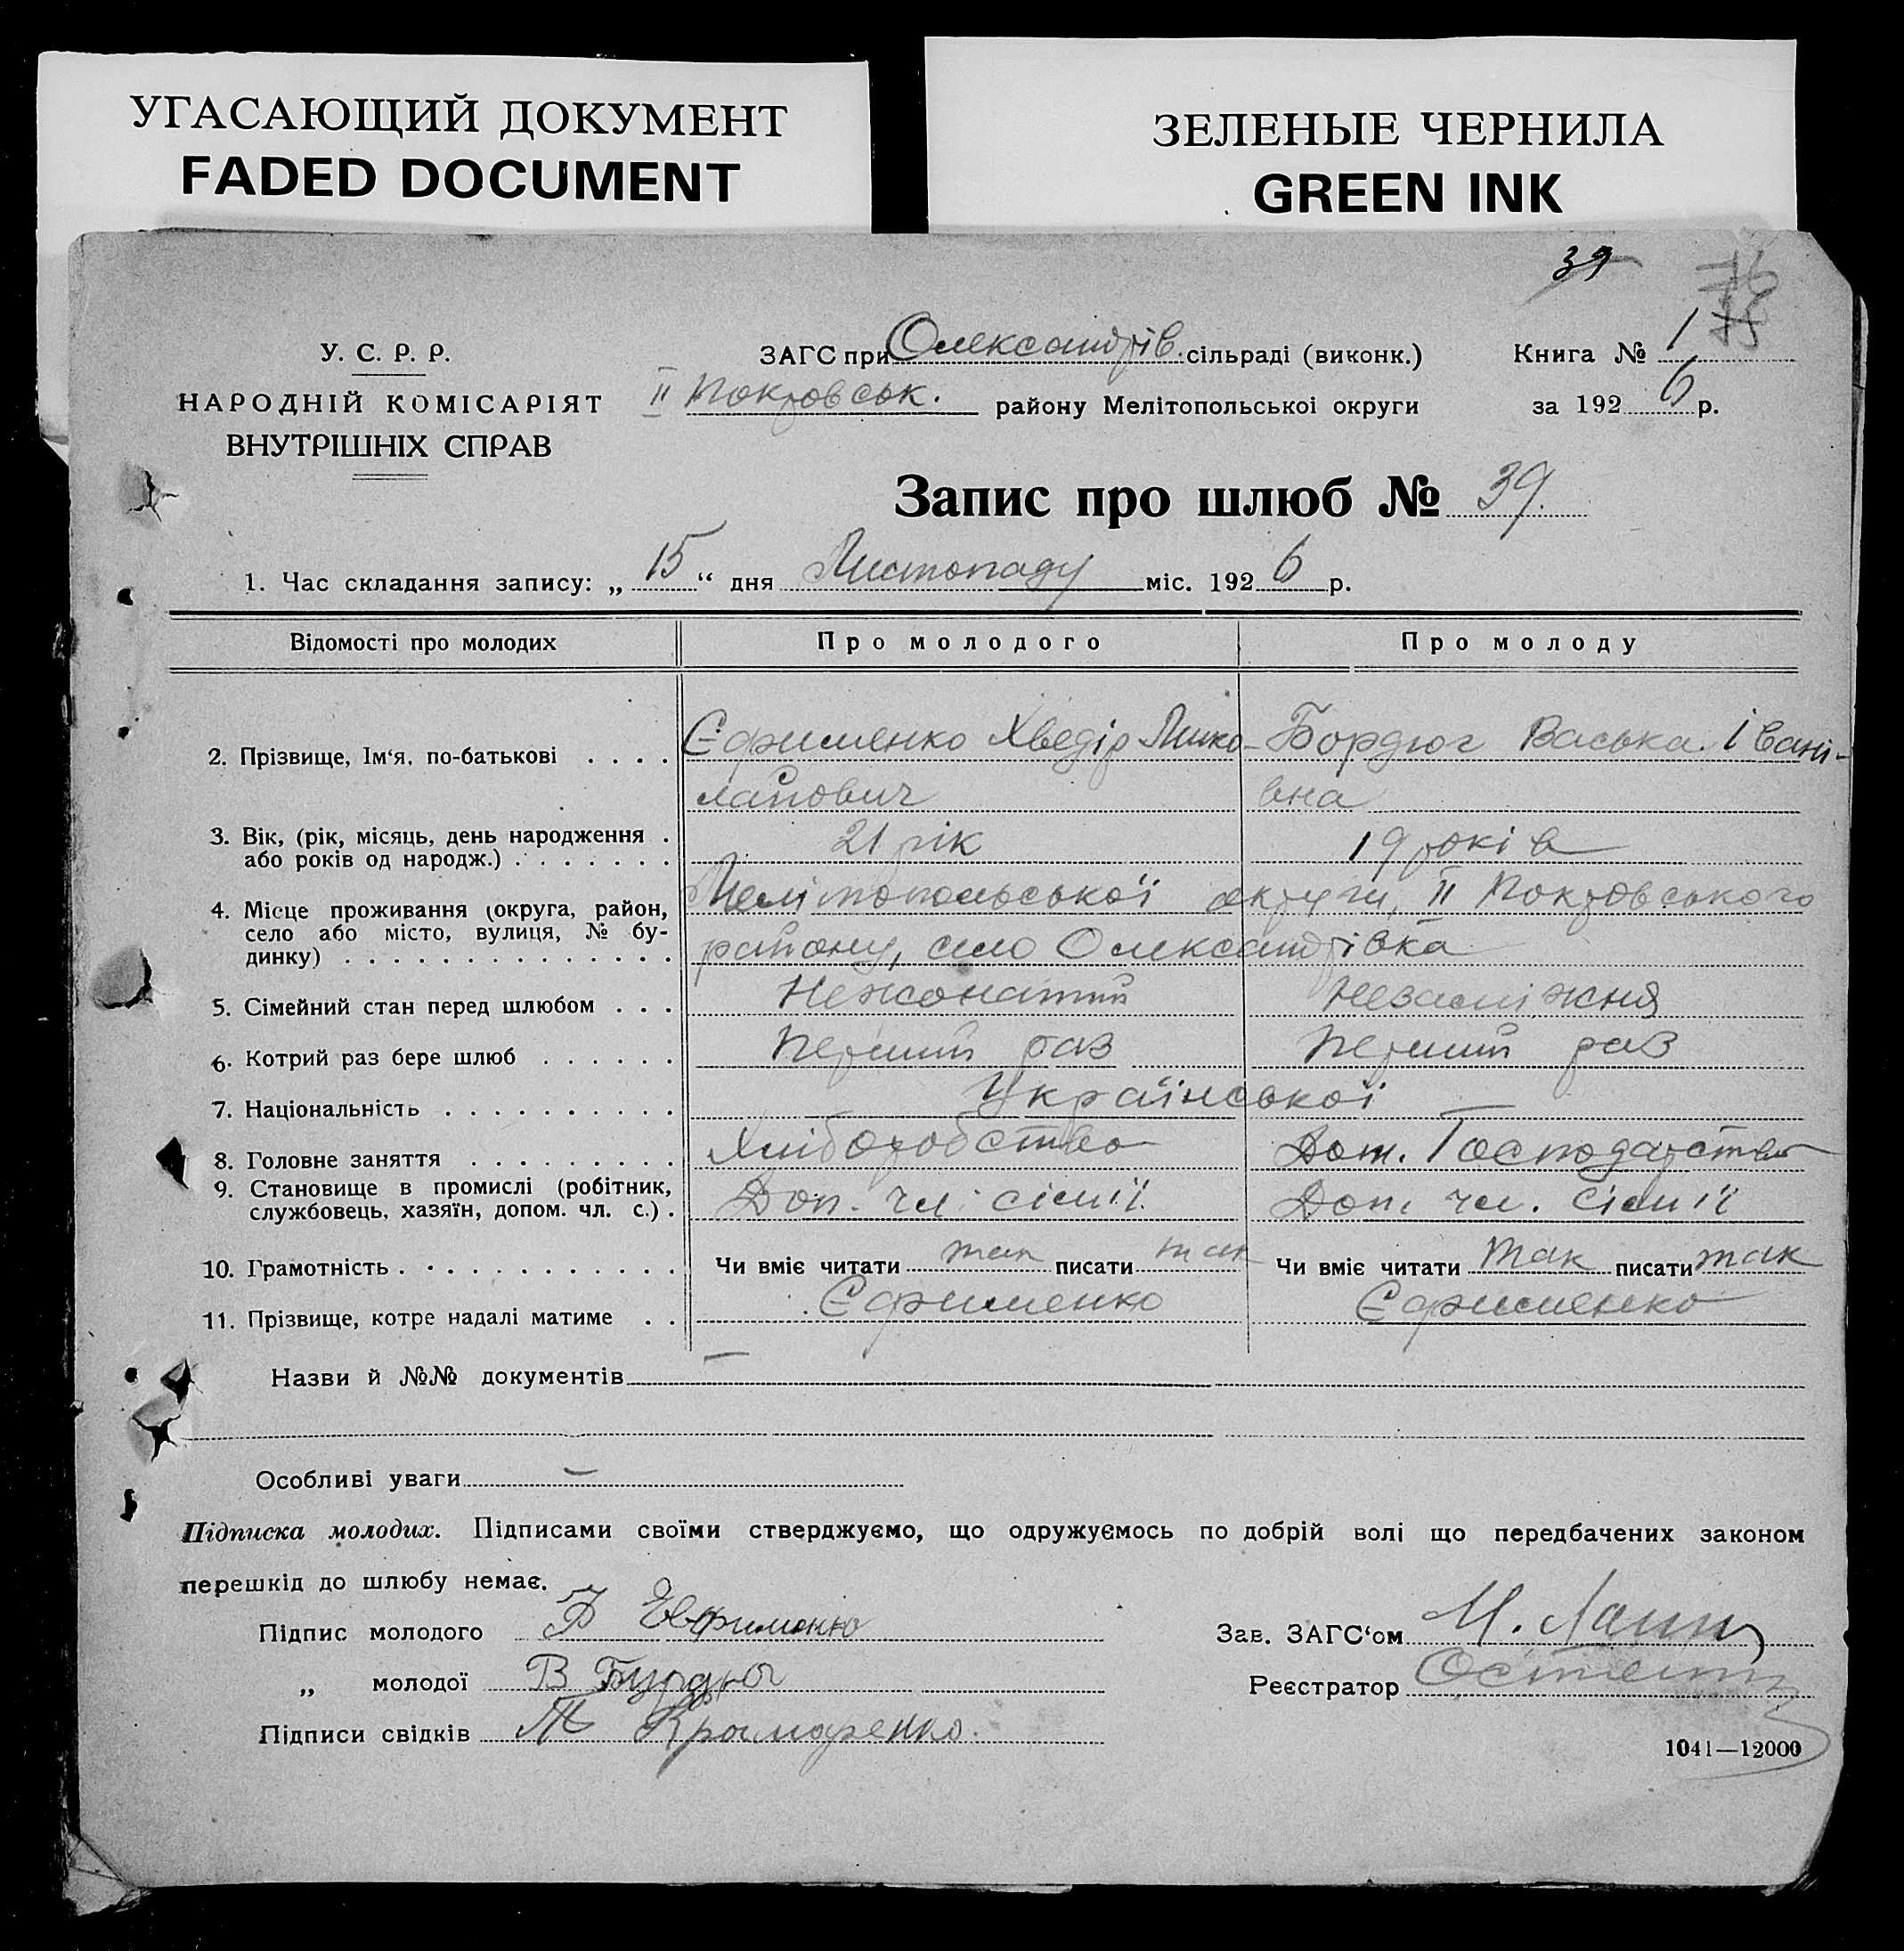 УГАСАЮЩИЙ ДОКУМЕНТ
FADED DOCUMENT
ЗЕЛЕНЫЕ ЧЕРНИЛА
GREEN INK
39
76
У. С. Р. Р.
НАРОДНІЙ КОМІСАРІЯТ
ВНУТРІШНІХ СПРАВ
ЗАГС при Олександрів. сільраді (виконк.)
Книга № 1
II Покровськ. району Мелітопольської округи
за 1926 р.
Запис про шлюб № 39.
1. Час складання запису: „15“ дня Листопаду міс. 1926 р.
Відомості про молодих Про молодого Про молоду
2. Прізвище, Ім‘я, по-батькові . . . . Єфименко Хведір Мико- Бордюг Васька Івані-
лайович вна
3. Вік, (рік, місяць, день народження .
або років од народж.) . . . . . . . 21 рік 19 років
4. Місце проживання (округа, район, Мелітопольської округи, II Покровського
село або місто, вулиця, № бу- району, село Олександрівка
динку) . . . . . . . . . . . . . .
5. Сімейний стан перед шлюбом . . . Нежонатий Незаміжня
6. Котрий раз бере шлюб . . . . . . Перший раз Перший раз
7. Національність . . . . . . . . . . Української
8. Головне заняття . . . . . . . . . Хліборобство Дом. Господарство
9. Становище в промислі (робітник,
службовець, хазяїн, допом. чл. с.) . Доп. чл. сімії. Доп. чл. сімії
10. Грамотність . . . . . . . . . . . . Чи вміє читати так писати так Чи вміє читати так писати так
11. Прізвище, котре надалі матиме . . Єфименко Єфименко
Назви й №№ документів —
Особливі уваги —
Підписка молодих. Підписами своїми стверджуємо, що одружуємось по добрій волі що передбачених законом
перешкід до шлюбу немає.
Підпис молодого Ф Евфименко
Зав. ЗАГС‘ом М.
„ молодої В Бурдюг
Реєстратор
Підписи свідків Крамаренко.
1041—12000